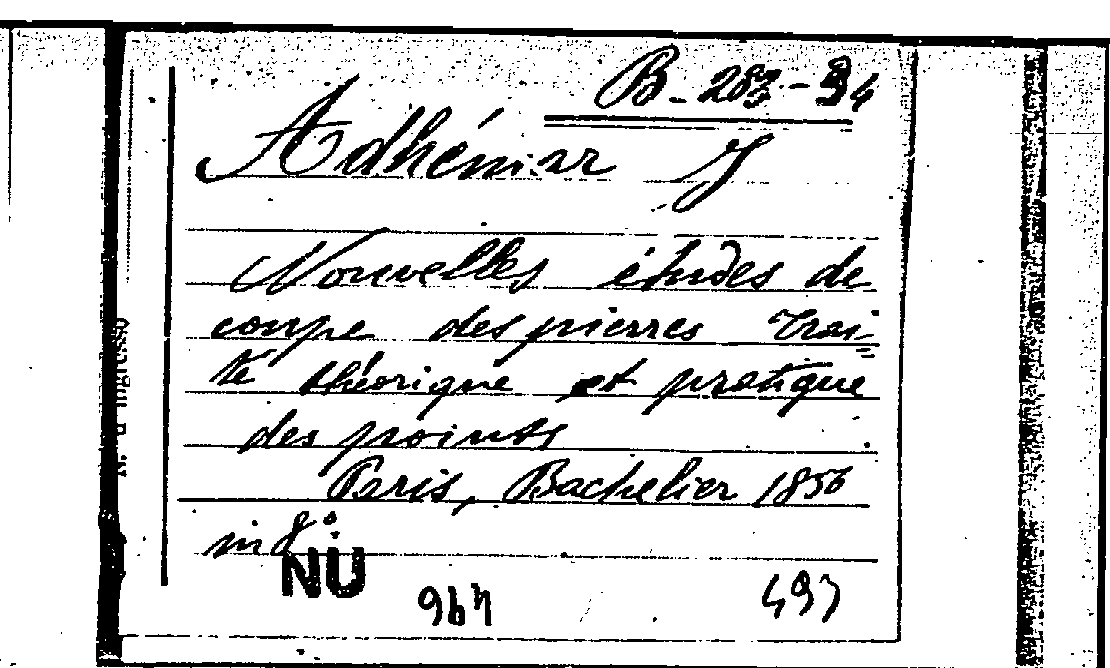 B-283-34
Adhémar J
Nouvelles études de
coupe des pierres Trai-
té théorique et pratique
des points
Paris, Bachelier 1856
in 8°
NU
964
493